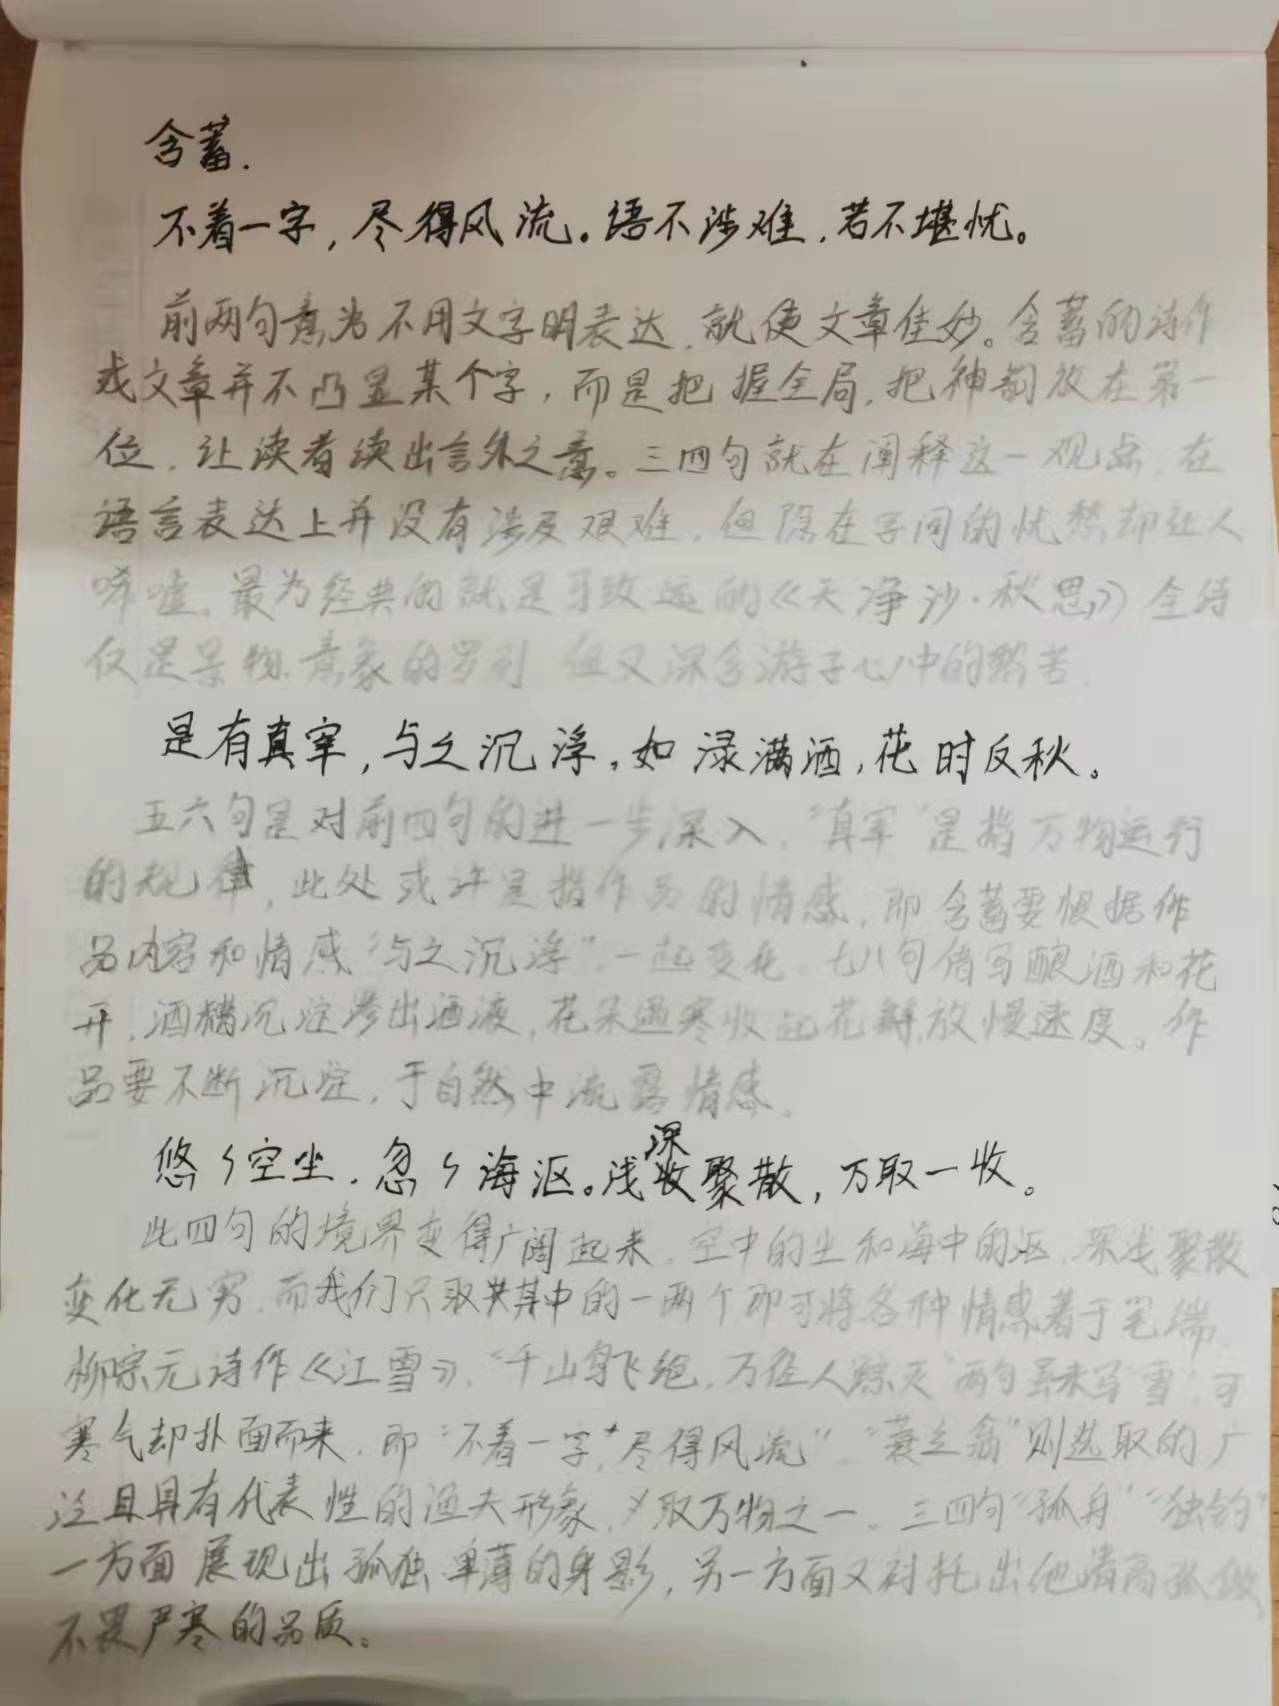 含蓄.
不着一字，尽得风流。语不涉难，若不堪忧。
前两句意为不用文字明表达，就使文章佳妙。含蓄的诗作
或文章并不凸显某个字，而是把握全局，把神韵放在第一
位，让读者读出言外之意。三四句就在阐释这一观点，在
语言表达上并没有涉及艰难，但隐在字间的忧愁却让人
唏嘘。最为经典的就是马致远的《天净沙·秋思》全诗
仅是景物、意象的罗列 但又深含游子心中的愁苦.
是有真宰，与之沉浮。如渌满酒，花时反秋。
五六句是对前四句的进一步深入，“真宰”是指万物运行
的规律，此处或许是指作品的情感，即含蓄要根据作
品内容和情感“与之沉浮”，一起变化。七八句借写酿酒和花
开，酒糟沉淀渗出酒液，花朵遇寒收起花瓣，放慢速度。作
品要不断沉淀，于自然中流露情感。
悠々空尘，忽々海沤。浅深聚散，万取一收。
此四句的境界变得广阔起来，空中的尘和海中的沤，深浅聚散
变化无穷，而我们只取其中的一两个即可将各种情感着于笔端，
柳宗元诗作《江雪》，“千山鸟飞绝，万径人踪灭”两句虽未写“雪”，可
寒气却扑面而来，即“不着一字，尽得风流”，“蓑立翁”则选取的广
泛且具有代表性的渔夫形象，取万物之一。三四句“孤舟”“独钓”
一方面展现出孤独单薄的身影，另一方面又衬托出他清高孤傲
不畏严寒的品质。